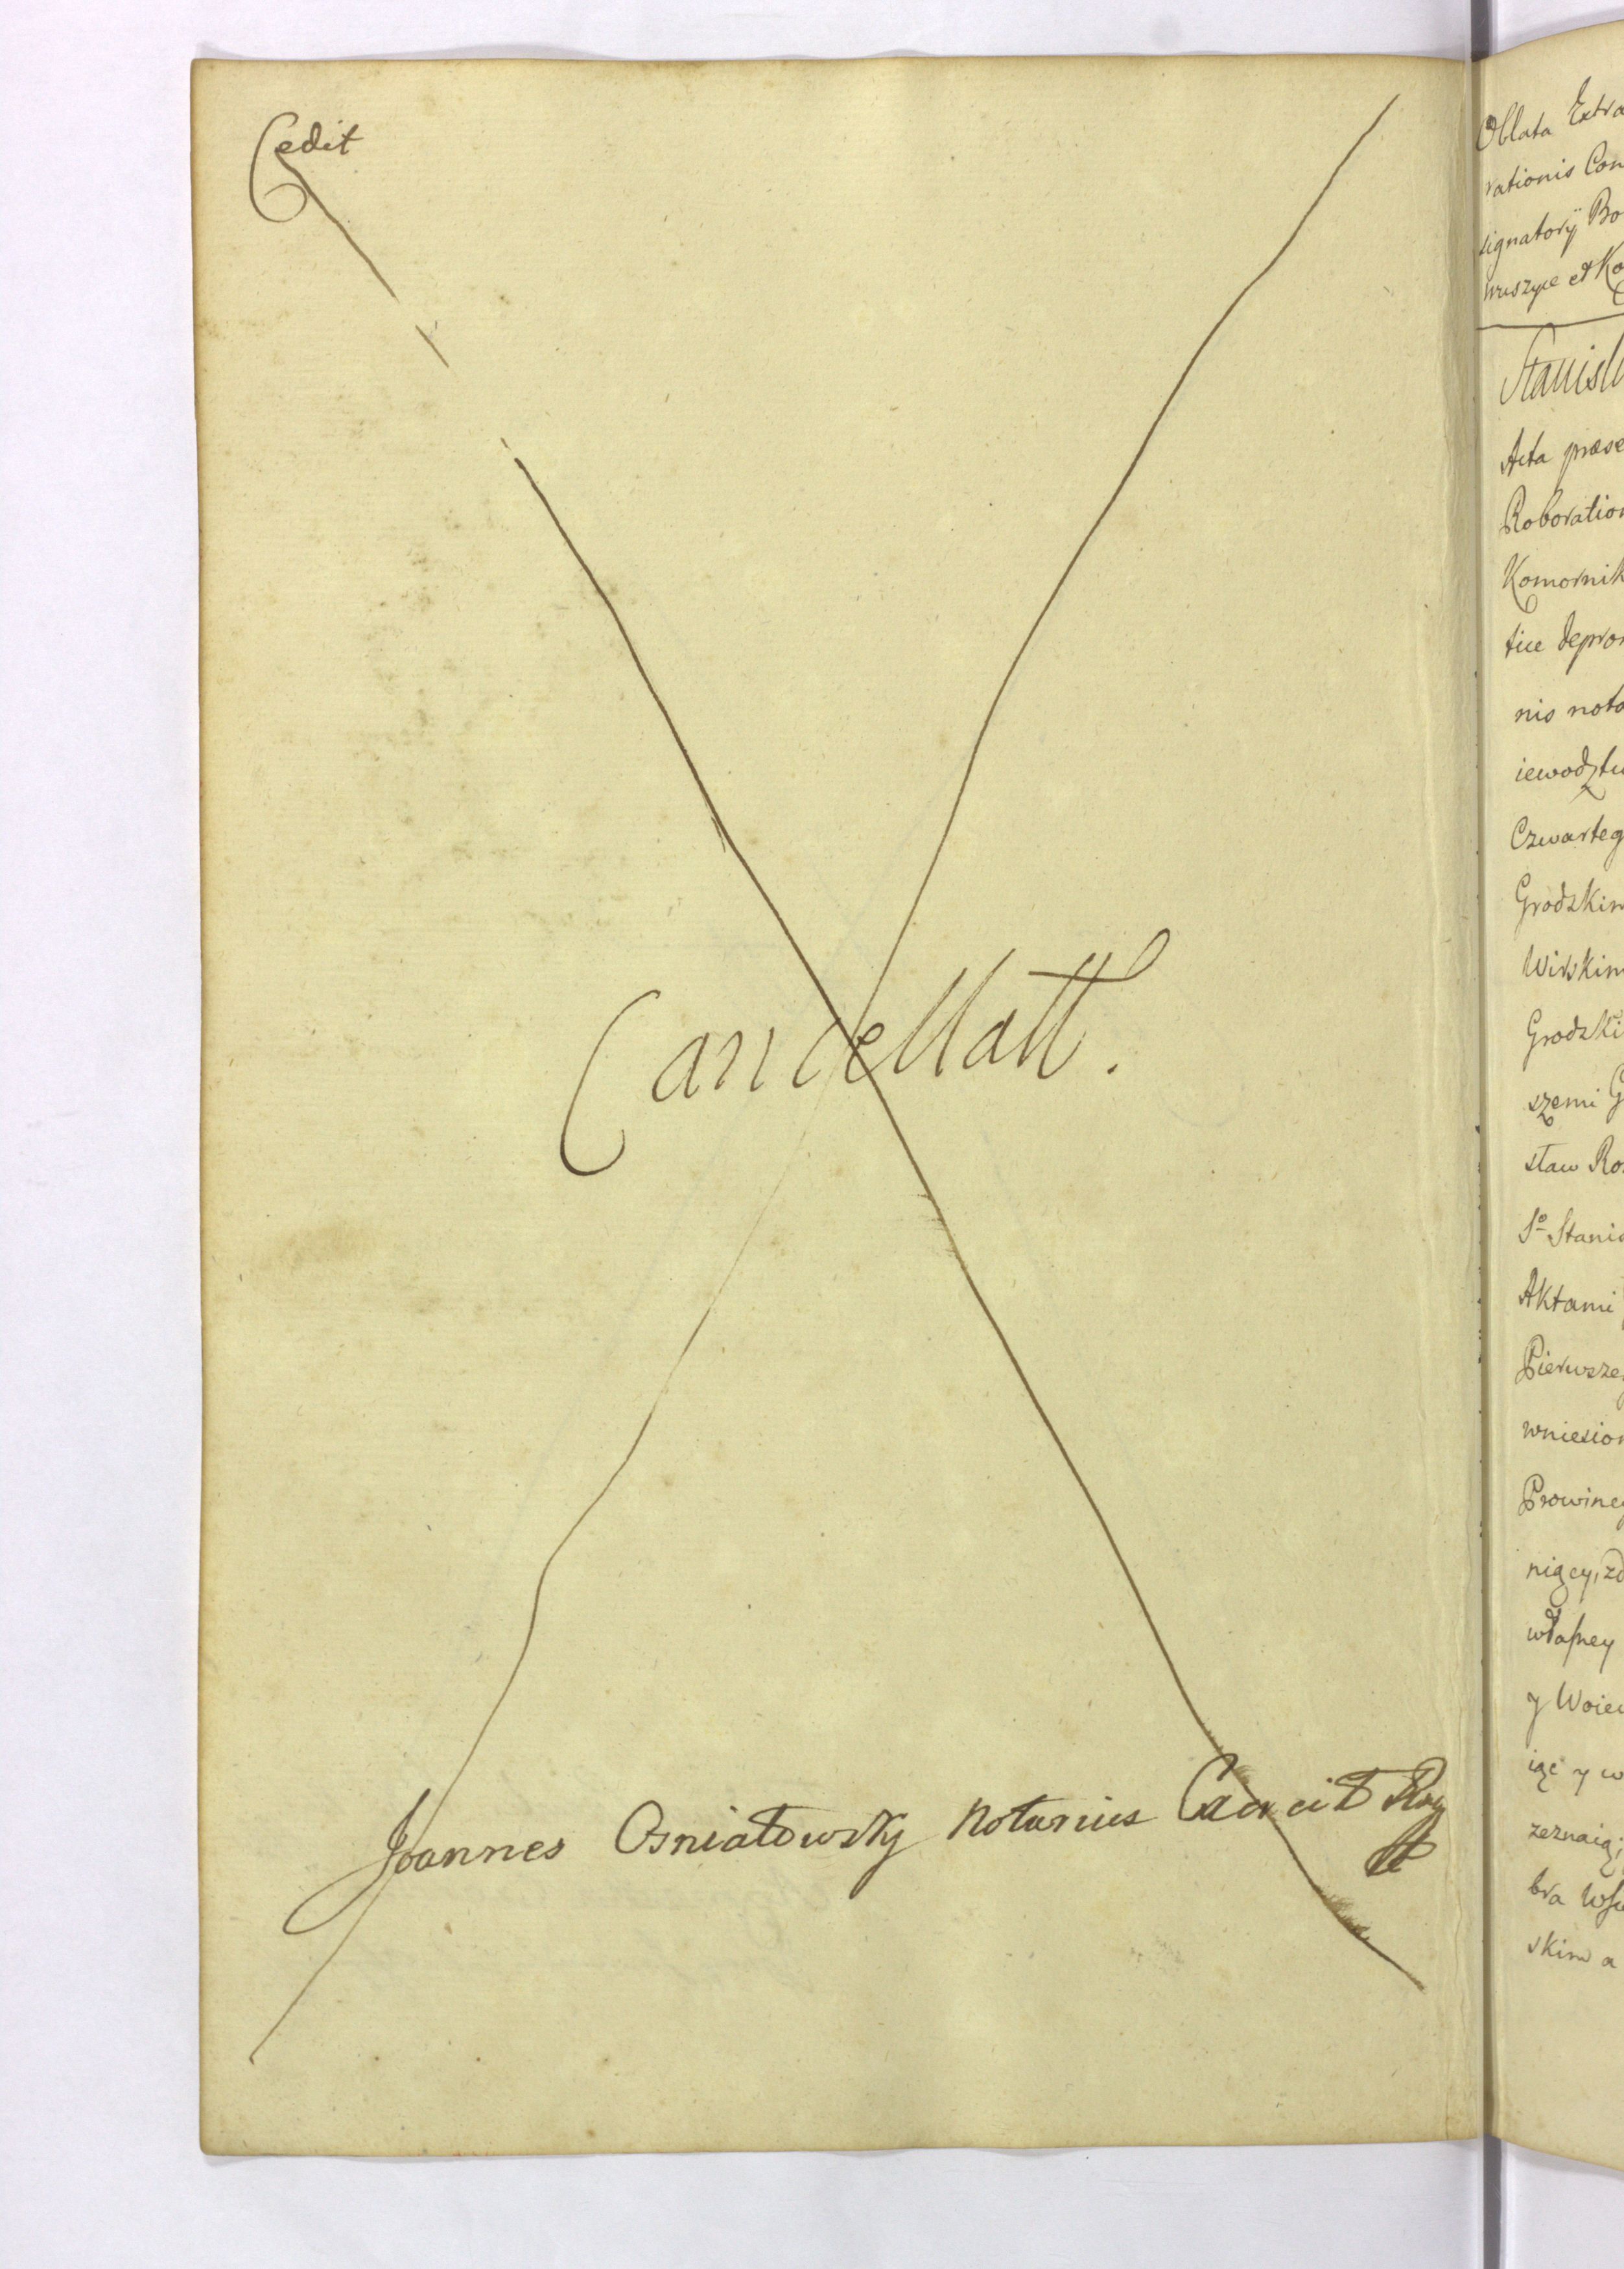 Cedit
Cancellatt.
Joannes Osniałowsky Notarius
Oblata Extra
rationis Con
signatorÿ Bo
wuszyce et Ko
Stanisl
Acta praese
Roboration
Komornik
tice depro
nis nota
iewodztw
Czwarteg
Grodzkim
Wirskim
Grodzki
szemi G
sław Ro
So Stanis
Aktami
Pierwsze
wniesion
Prowincy
nigcy, zd
właſney
y Woiew
iąc y w
zeznaią;
bra Wſz
skim a